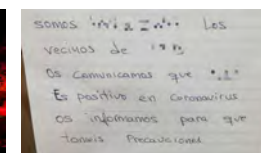 somos Los
vecinos de
Os Comunicamos que
Es positivo en Coronavirus
os informamos para que
tomeis Precauciones